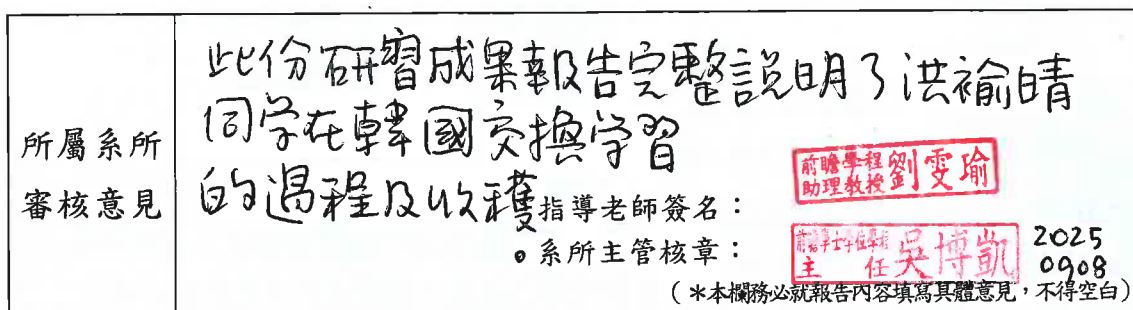 所屬系所
審核意見
此份研習成果報告完整說明了洪褕晴
同学在韓國交換学習
的過程及收穫。
指導老師簽名：
前瞻學程
助理教授 劉雯瑜
系所主管核章：
前瞻學士學位學程
主任 吳博凱
2025
0908
（＊本欄務必就報告內容填寫具體意見，不得空白）